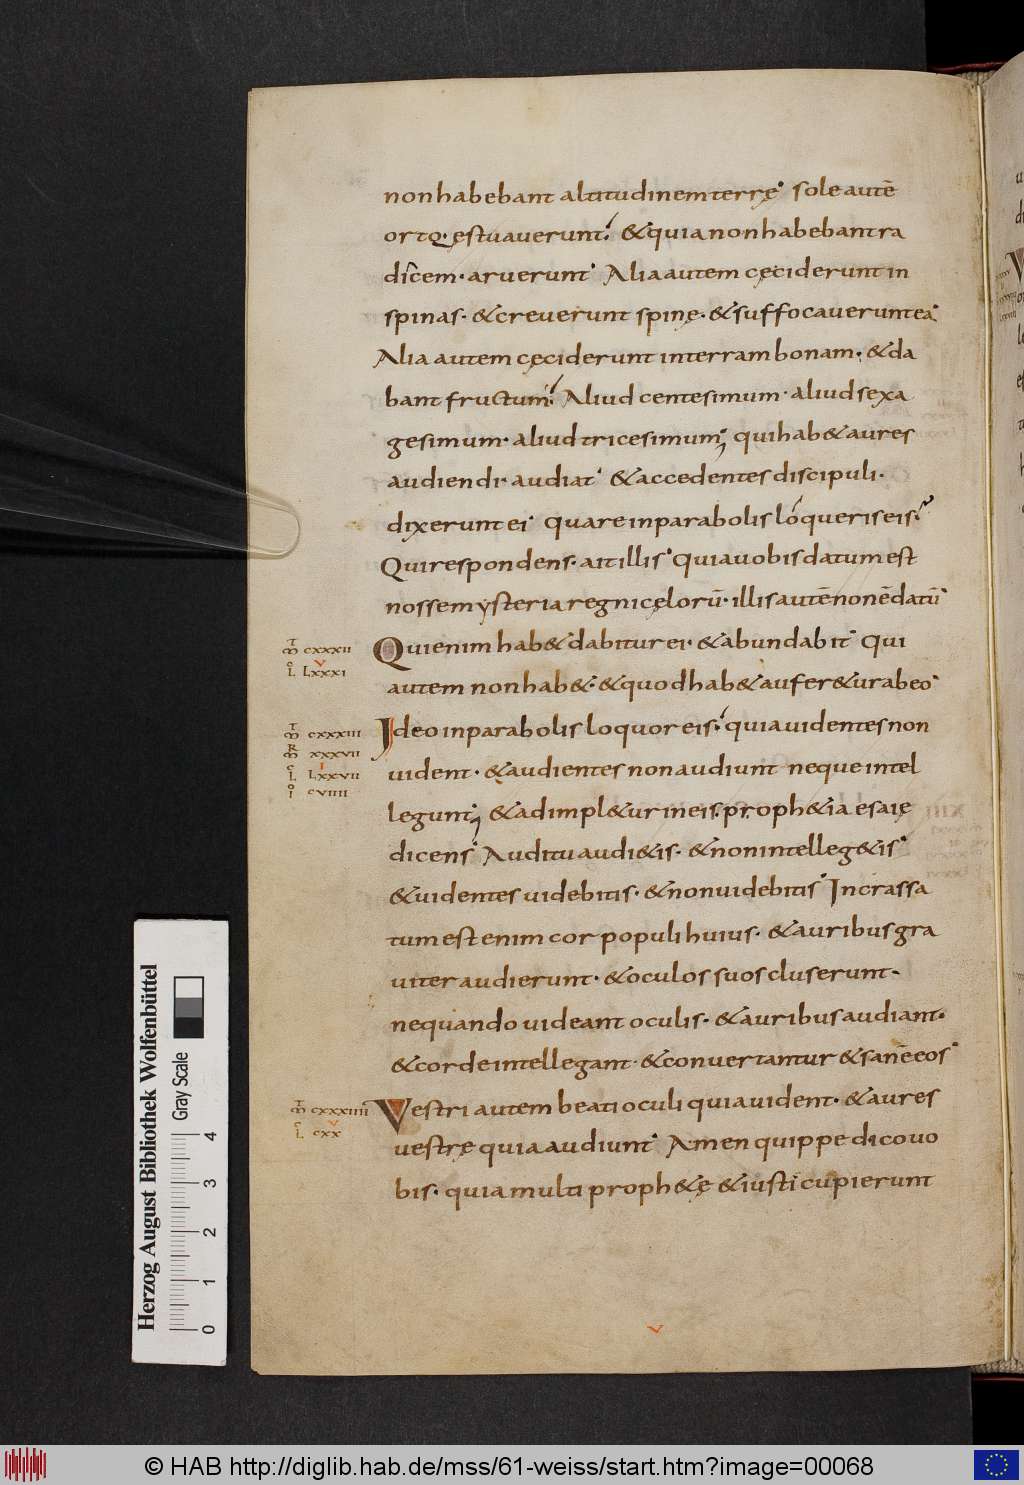 non habebant altitudinem terrę sole autē
orto· ęstuauerunt. & quia non habebant ra
dicem· aruerunt· Alia autem cęciderunt in
spinas· & creuerunt spinę· & suffocauerunt ea·
Alia autem cęciderunt in terram bonam· & da
bant fructum. Aliud centesimum· aliud sexa
gesimum· aliud tricesimum; qui hab& aures
audiendi· audiat· & accedentes discipuli·
dixerunt ei· quare in parabolis loqueris eis·
Qui respondens· ait illis· Quia uobis datum est
nosse mysteria regni cęlorū· illis autē non ē datū·
T M CXXXII
L LXXXI
V
Qui enim hab& dabitur ei· & abundabit· Qui
autem non hab&· & quod hab& aufer&ur ab eo·
T M CXXXIII
R M XXXVII
L LXXVII
I
I CVIIII
Ideo in parabolis loquor eis· quia uidentes non
uident· & audientes non audiunt neque intel
legunt; & adimpl&ur in eis· proph&ia esaię
dicens· Auditu audi&is· & non intelleg&is·
& uidentes uidebitis· & non uidebitis· Incrassa
tum est enim cor populi huius· & auribus gra
uiter audierunt· & oculos suos cluserunt·
nequando uideant oculis· & auribus audiant·
& corde intellegant· & conuertantur & sanē eos·
T M CXXXIIII
L CXX
V
Vestri autem beati oculi quia uident· & aures
uestrę quia audiunt· Amen quippe dico uo
bis· quia multi proph&ę & iusti cupierunt
Herzog August Bibliothek Wolfenbüttel
Gray Scale
0 1 2 3 4
© HAB http://diglib.hab.de/mss/61-weiss/start.htm?image=00068